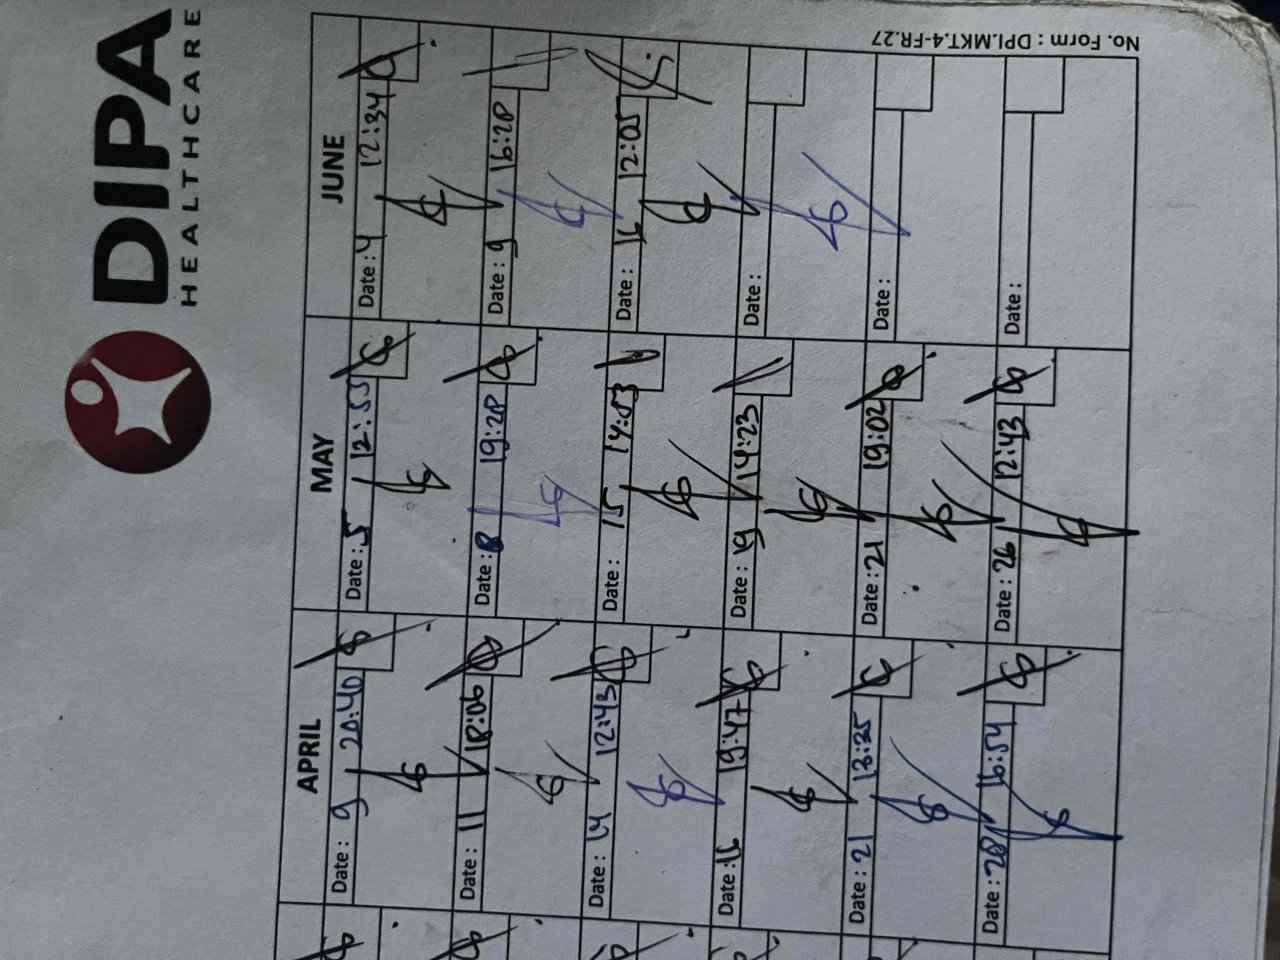 DIPA
HEALTHCARE
APRIL MAY JUNE
Date : 9 20:40 Date : 5 12:53 Date : 4 12:34
Date : 11 18:06 Date : 8 19:28 Date : 9 16:28
Date : 14 12:43 Date : 15 14:53 Date : 16 12:05
Date : 16 19:47 Date : 19 14:23 Date :
Date : 21 13:35 Date : 21 19:02 Date :
Date : 28 16:54 Date : 26 12:43 Date :
No. Form : DPI.MKT.4-FR.27